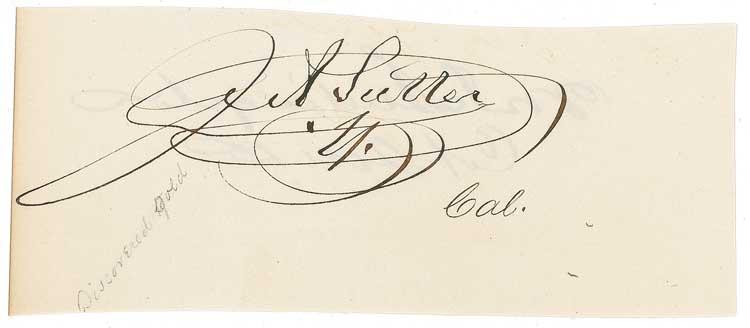 J A Sutter
Cal.
Discovered gold